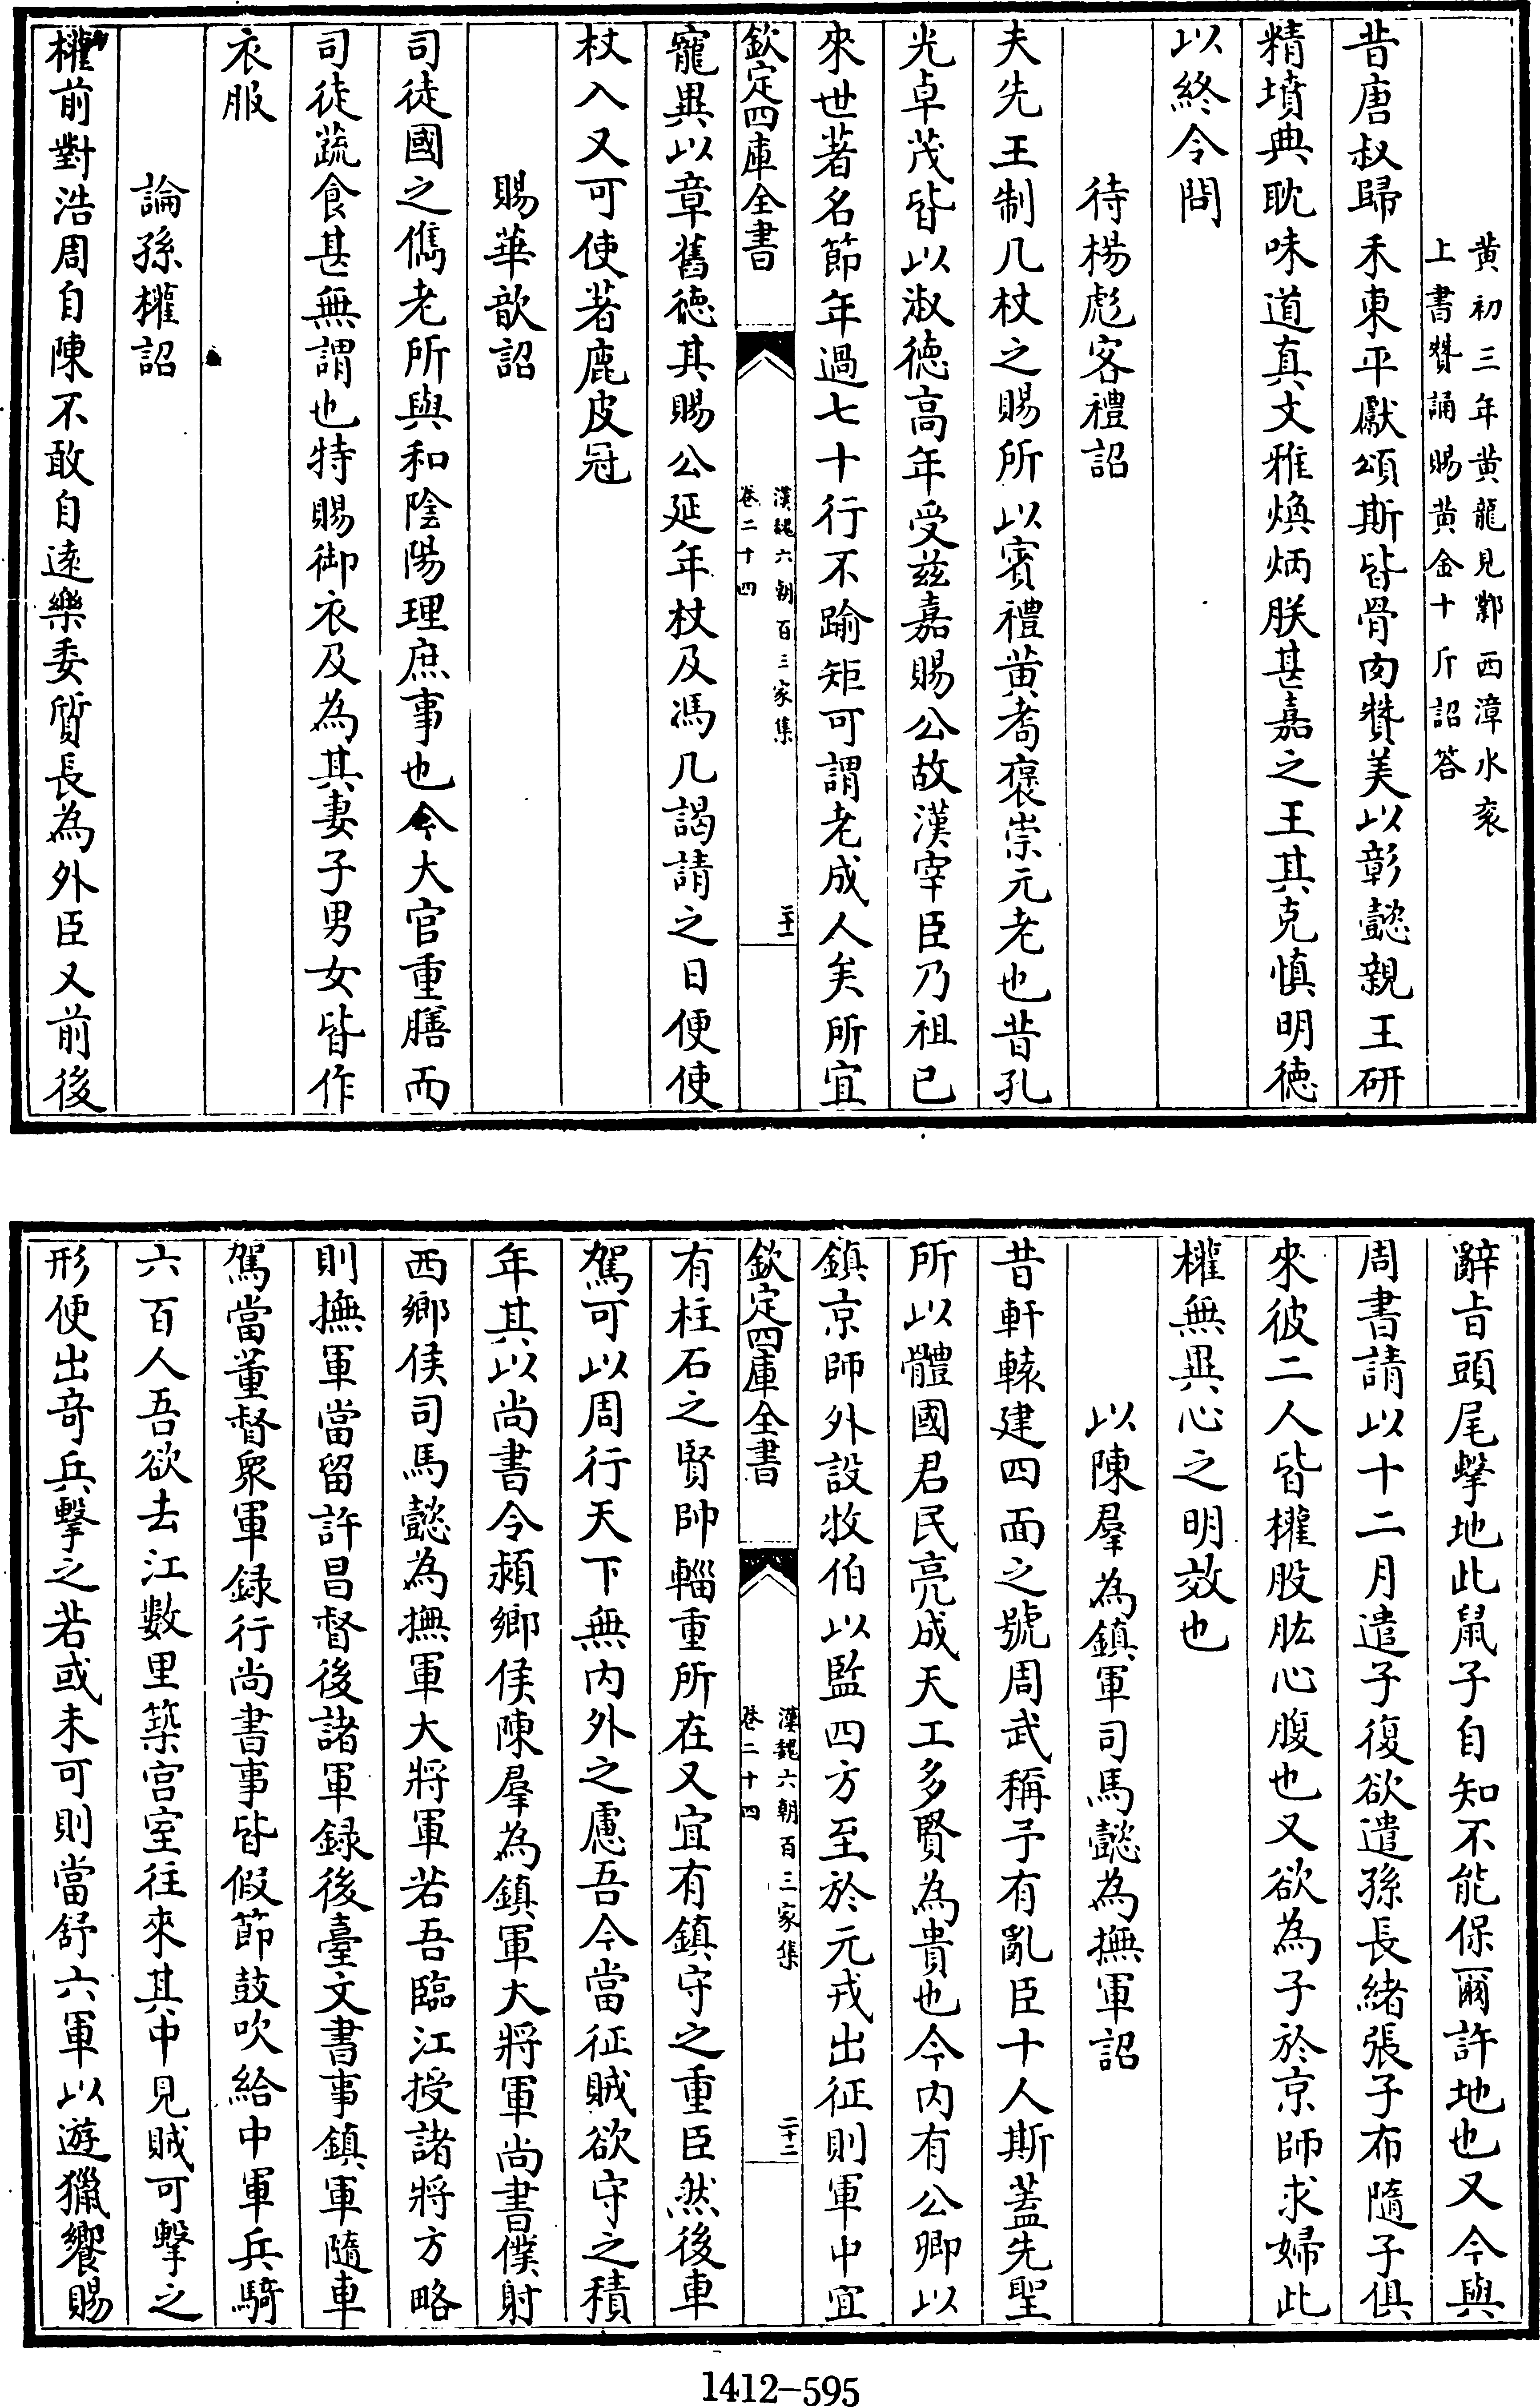 黄初三年黄龍見鄴西漳水衮
上書贊誦賜黄金十斤詔答
昔唐叔歸禾東平獻頌斯皆骨肉贊美以彰懿親王研
精墳典耽味道真文雅煥炳朕甚嘉之王其克慎明德
以終令問
待楊彪客禮詔
夫先王制几杖之賜所以賓禮黄耇褒崇元老也昔孔
光卓茂皆以淑德高年受兹嘉賜公故漢宰臣乃祖已
來世著名節年過七十行不踰矩可謂老成人矣所宜
欽定四庫全書
漢魏六朝百三家集
卷二十四
二十一
寵異以章舊德其賜公延年杖及馮几謁請之日便使
杖入又可使著鹿皮冠
賜華歆詔
司徒國之儁老所與和陰陽理庶事也今大官重膳而
司徒蔬食甚無謂也特賜御衣及為其妻子男女皆作
衣服
論孫權詔
權前對浩周自陳不敢自遠樂委質長為外臣又前後
辭㫖頭尾擊地此鼠子自知不能保爾許地也又今與
周書請以十二月遣子復欲遣孫長緒張子布隨子俱
來彼二人皆權股肱心腹也又欲為子於京師求婦此
權無異心之明效也
以陳羣為鎮軍司馬懿為撫軍詔
昔軒轅建四面之號周武稱予有亂臣十人斯蓋先聖
所以體國君民亮成天工多賢為貴也今内有公卿以
鎮京師外設牧伯以監四方至於元戎出征則軍中宜
欽定四庫全書
漢魏六朝百三家集
卷二十四
二十二
有柱石之賢帥輜重所在又宜有鎮守之重臣然後車
駕可以周行天下無内外之慮吾今當征賊欲守之積
年其以尚書令潁鄉侯陳羣為鎮軍大將軍尚書僕射
西鄉侯司馬懿為撫軍大將軍若吾臨江授諸將方略
則撫軍當留許昌督後諸軍録後臺文書事鎮軍隨車
駕當董督衆軍録行尚書事皆假節鼓吹給中軍兵騎
六百人吾欲去江數里築宫室往來其中見賊可擊之
形便出竒兵擊之若或未可則當舒六軍以遊獵饗賜
1412-595